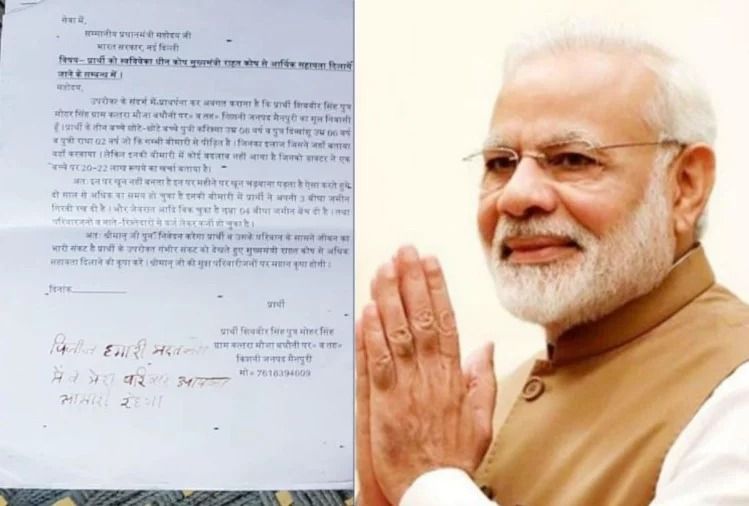 सेवा में,
सम्मानीय प्रधानमंत्री महोदय जी
भारत सरकार, नई दिल्ली
विषय– प्रार्थी को स्वविवेका धीन कोष मुख्यमंत्री राहत कोष से आर्थिक सहायता दिलायें
जाने के सम्बन्ध में।
महोदय,
उपरोक्त के संदर्भ में प्रार्थना कर अवगत कराना है कि प्रार्थी शिववीर सिंह पुत्र
मोहर सिंह ग्राम कत्तरा मौजा बघौनी पर० व तह० किशनी जनपद मैनपुरी का मूल निवासी
हूँ। प्रार्थी के तीन बच्चे छोटे-छोटे बच्चे पुत्री करिश्मा उम्र 08 वर्ष व पुत्र दिव्यांशू उम्र 06 वर्ष
व पुत्री राधा 02 वर्ष जो कि गम्भी बीमारी से पीड़ित है। जिनका इलाज जिसने जहाँ बताया
वहाँ करवाया। लेकिन इनकी बीमारी में कोई बदलाव नहीं आया है जिनको डाक्टर ने एक
बच्चे पर 20–22 लाख रूपये का खर्चा बताया है।
अतः इन पर खून नहीं बनता है इन पर महीने पर खून चढ़वाना पड़ता है ऐसा करते हुये
दो साल से अधिक का समय हो चुका है इनकी बीमारी में प्रार्थी ने अपनी 3 बीघा जमीन
गिरवी रख दी है। और जेवरात आदि बिक चुका है तथा 04 बीघा जमीन बेंच दी है। तथा
परिवारजनों व नाते-रिश्तेदारों से कर्ज लेकर कर्जी हो चुका है।
अतः श्रीमान् जी पुनः निवेदन करेगा प्रार्थी व उसके परिवान के सामने जीवन का
भारी संकट है प्रार्थी के उपरोक्त गंभीर संकट को देखते हुए मुख्यमंत्री राहत कोष से अधिक
सहायता दिलाने की कृपा करें। श्रीमान् जी की मुझ परिवारीजनों पर महान कृपा होगी।
दिनांक
प्रार्थी
प्रार्थी शिववीर सिंह पुत्र मोहर सिंह
ग्राम कत्तरा मौजा बघौनी पर० व तह०
किशनी जनपद मैनपुरी
मो० 7618394609
प्लीज हमारी मदत करे
मैं व मेरा परिवार आपका
आभारी रहेगा